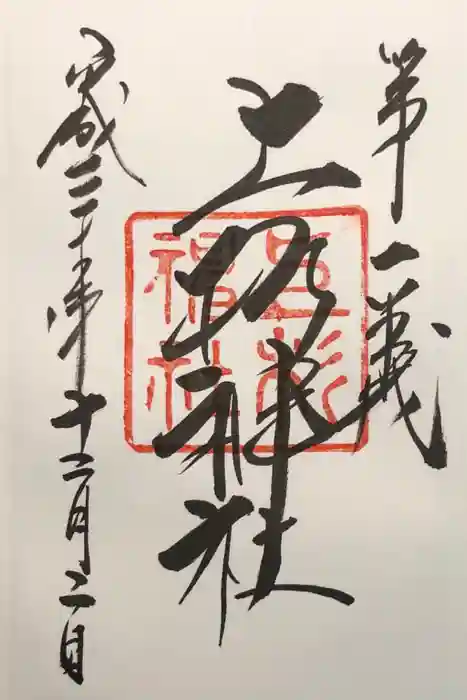 第一義
上杉神社
上杉神社
平成三十年十二月二日